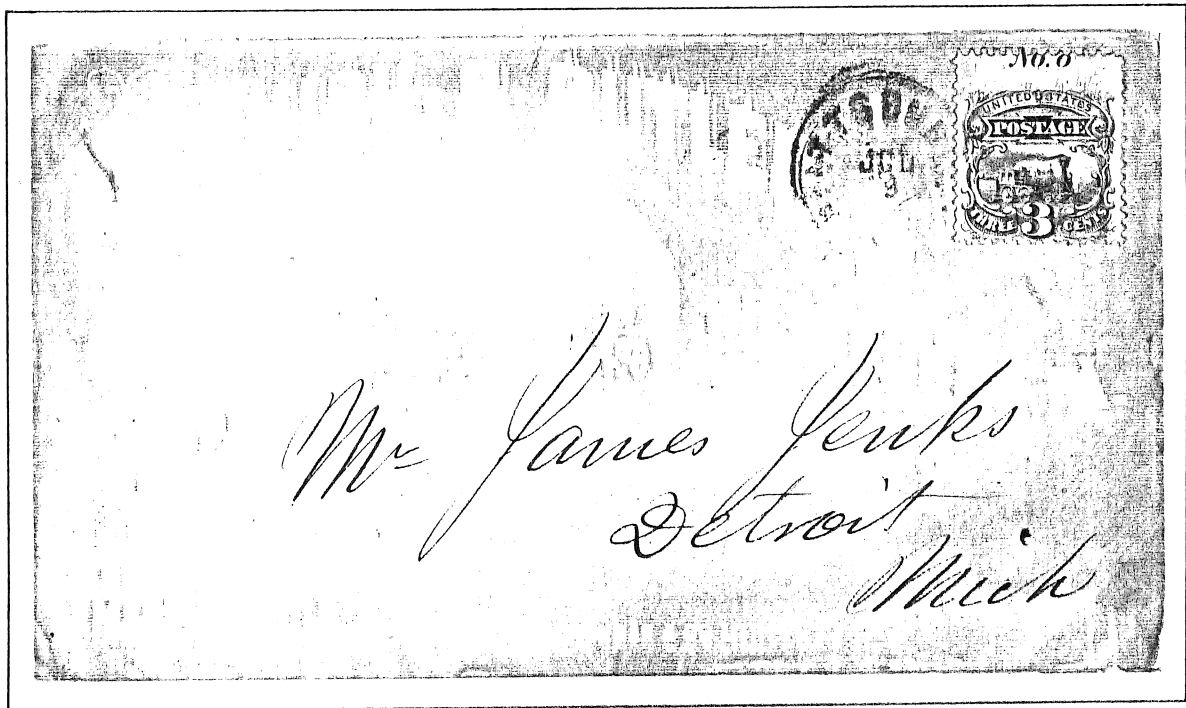 No. 8
UNITED STATES
POSTAGE
THREE 3 CENTS
JUL
9
Mr James Jenks
Detroit
Mich